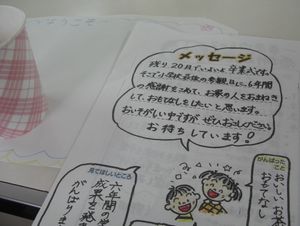 ようこそ
メッセージ
残り20日でいよいよ卒業式です。
そこで小学校最後の参観日に、6年間
の感謝をこめて、お家の人をおまねき
して、おもてなしをしたいと思います。
おいそがしい中ですが ぜひおこしください。
お持ちしています!
がんばったこと
おいしいお
おもてなし
見てほしいところ
六年間の
成果を発
がんばりま